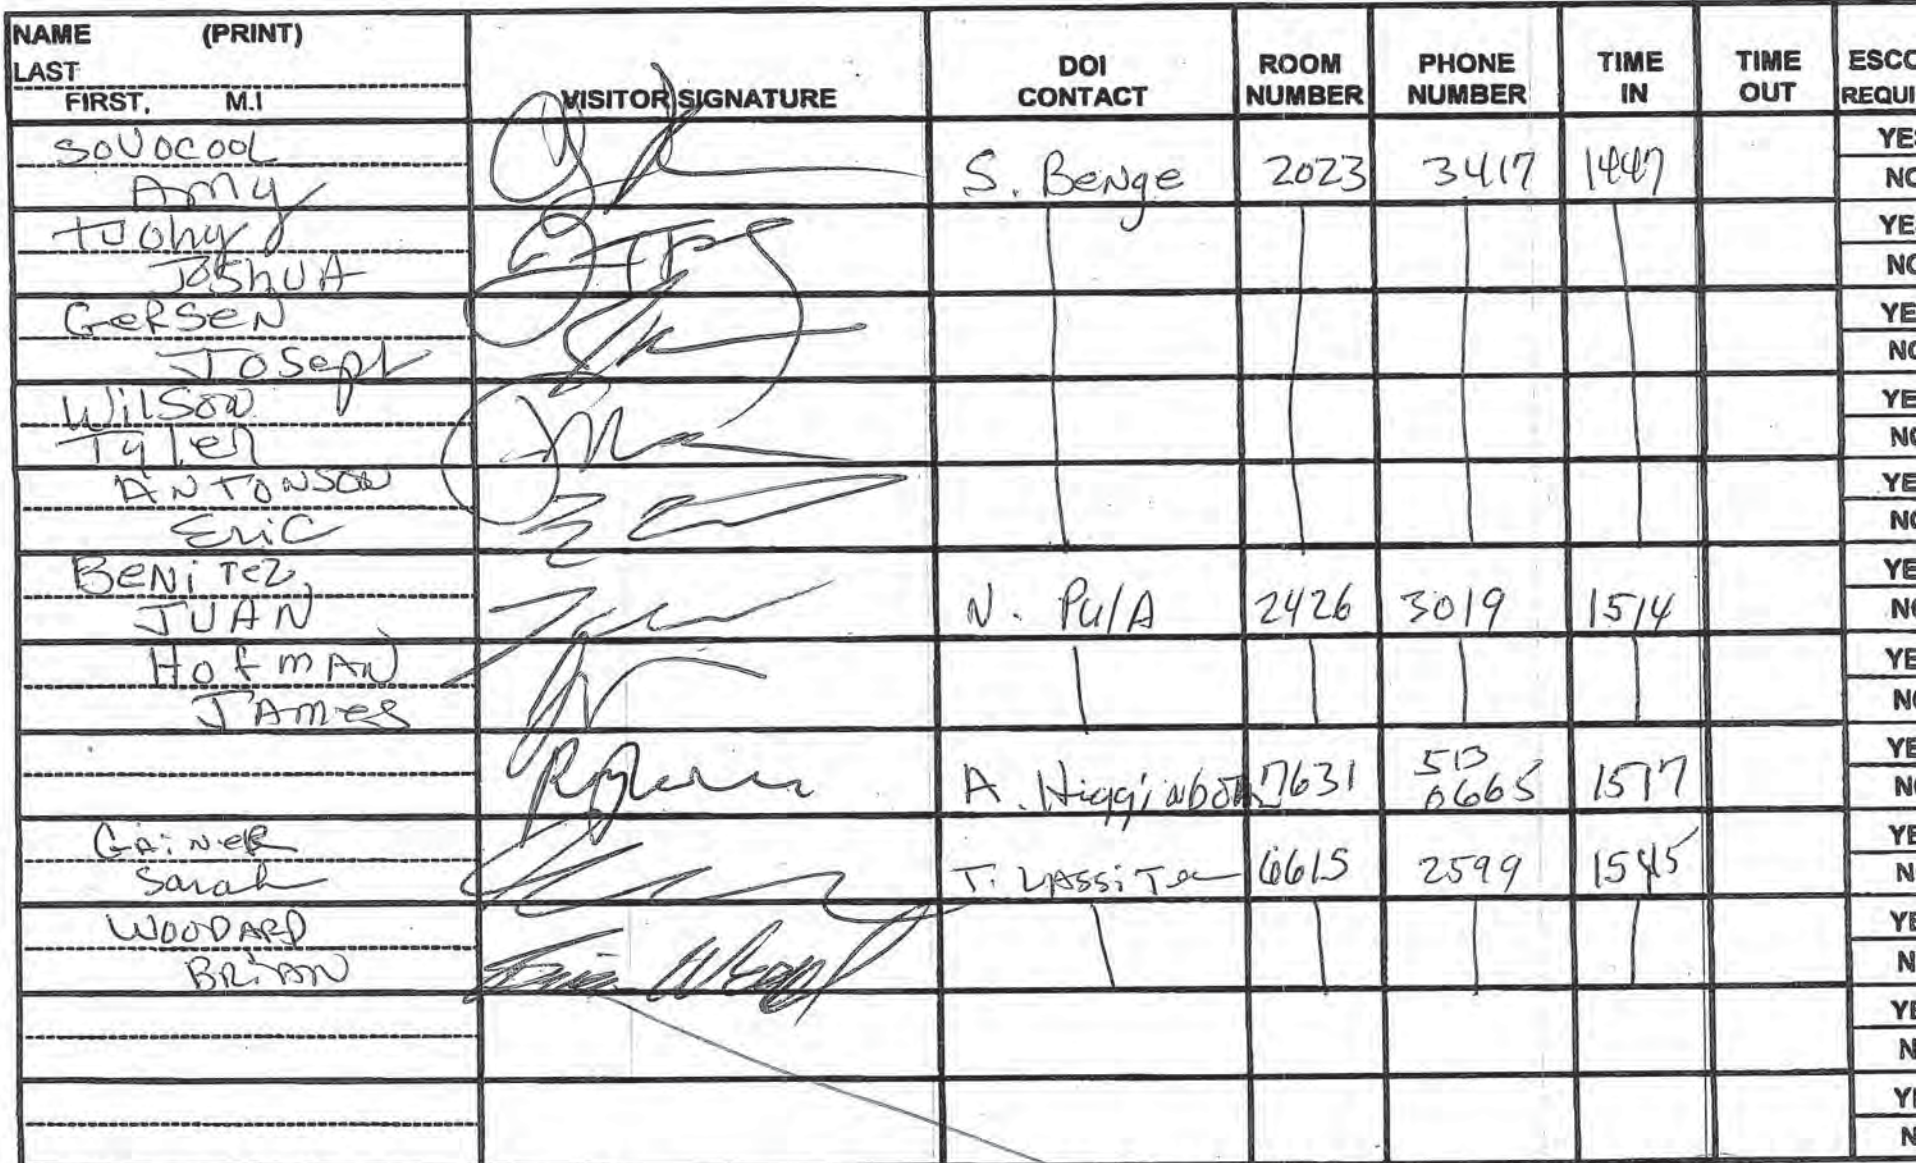 NAME (PRINT)
LAST
FIRST, M.I
VISITOR SIGNATURE
DOI CONTACT
ROOM NUMBER
PHONE NUMBER
TIME IN
TIME OUT
ESCO
REQUI
SOVOCOOL
Amy
S. Benge 2023 3417 1447
YES
NO
Tuohy
JOSHUA
YE
NO
GERSEN
Joseph
YE
NO
WilSON
Tyler
YE
NO
ANTONSON
Eric
YE
NO
BENiTez,
JUAN
N. Pula 2426 3019 1514
YE
NO
HofmAN
JAmes
YE
NO
A. Higginbotm 7631 513 0665 1517
YE
NO
GaiNeR
Sarah
T. LASSiTer 6615 2599 1545
YE
N
WOODARD
BRiAN
YE
N
YE
N
YE
N